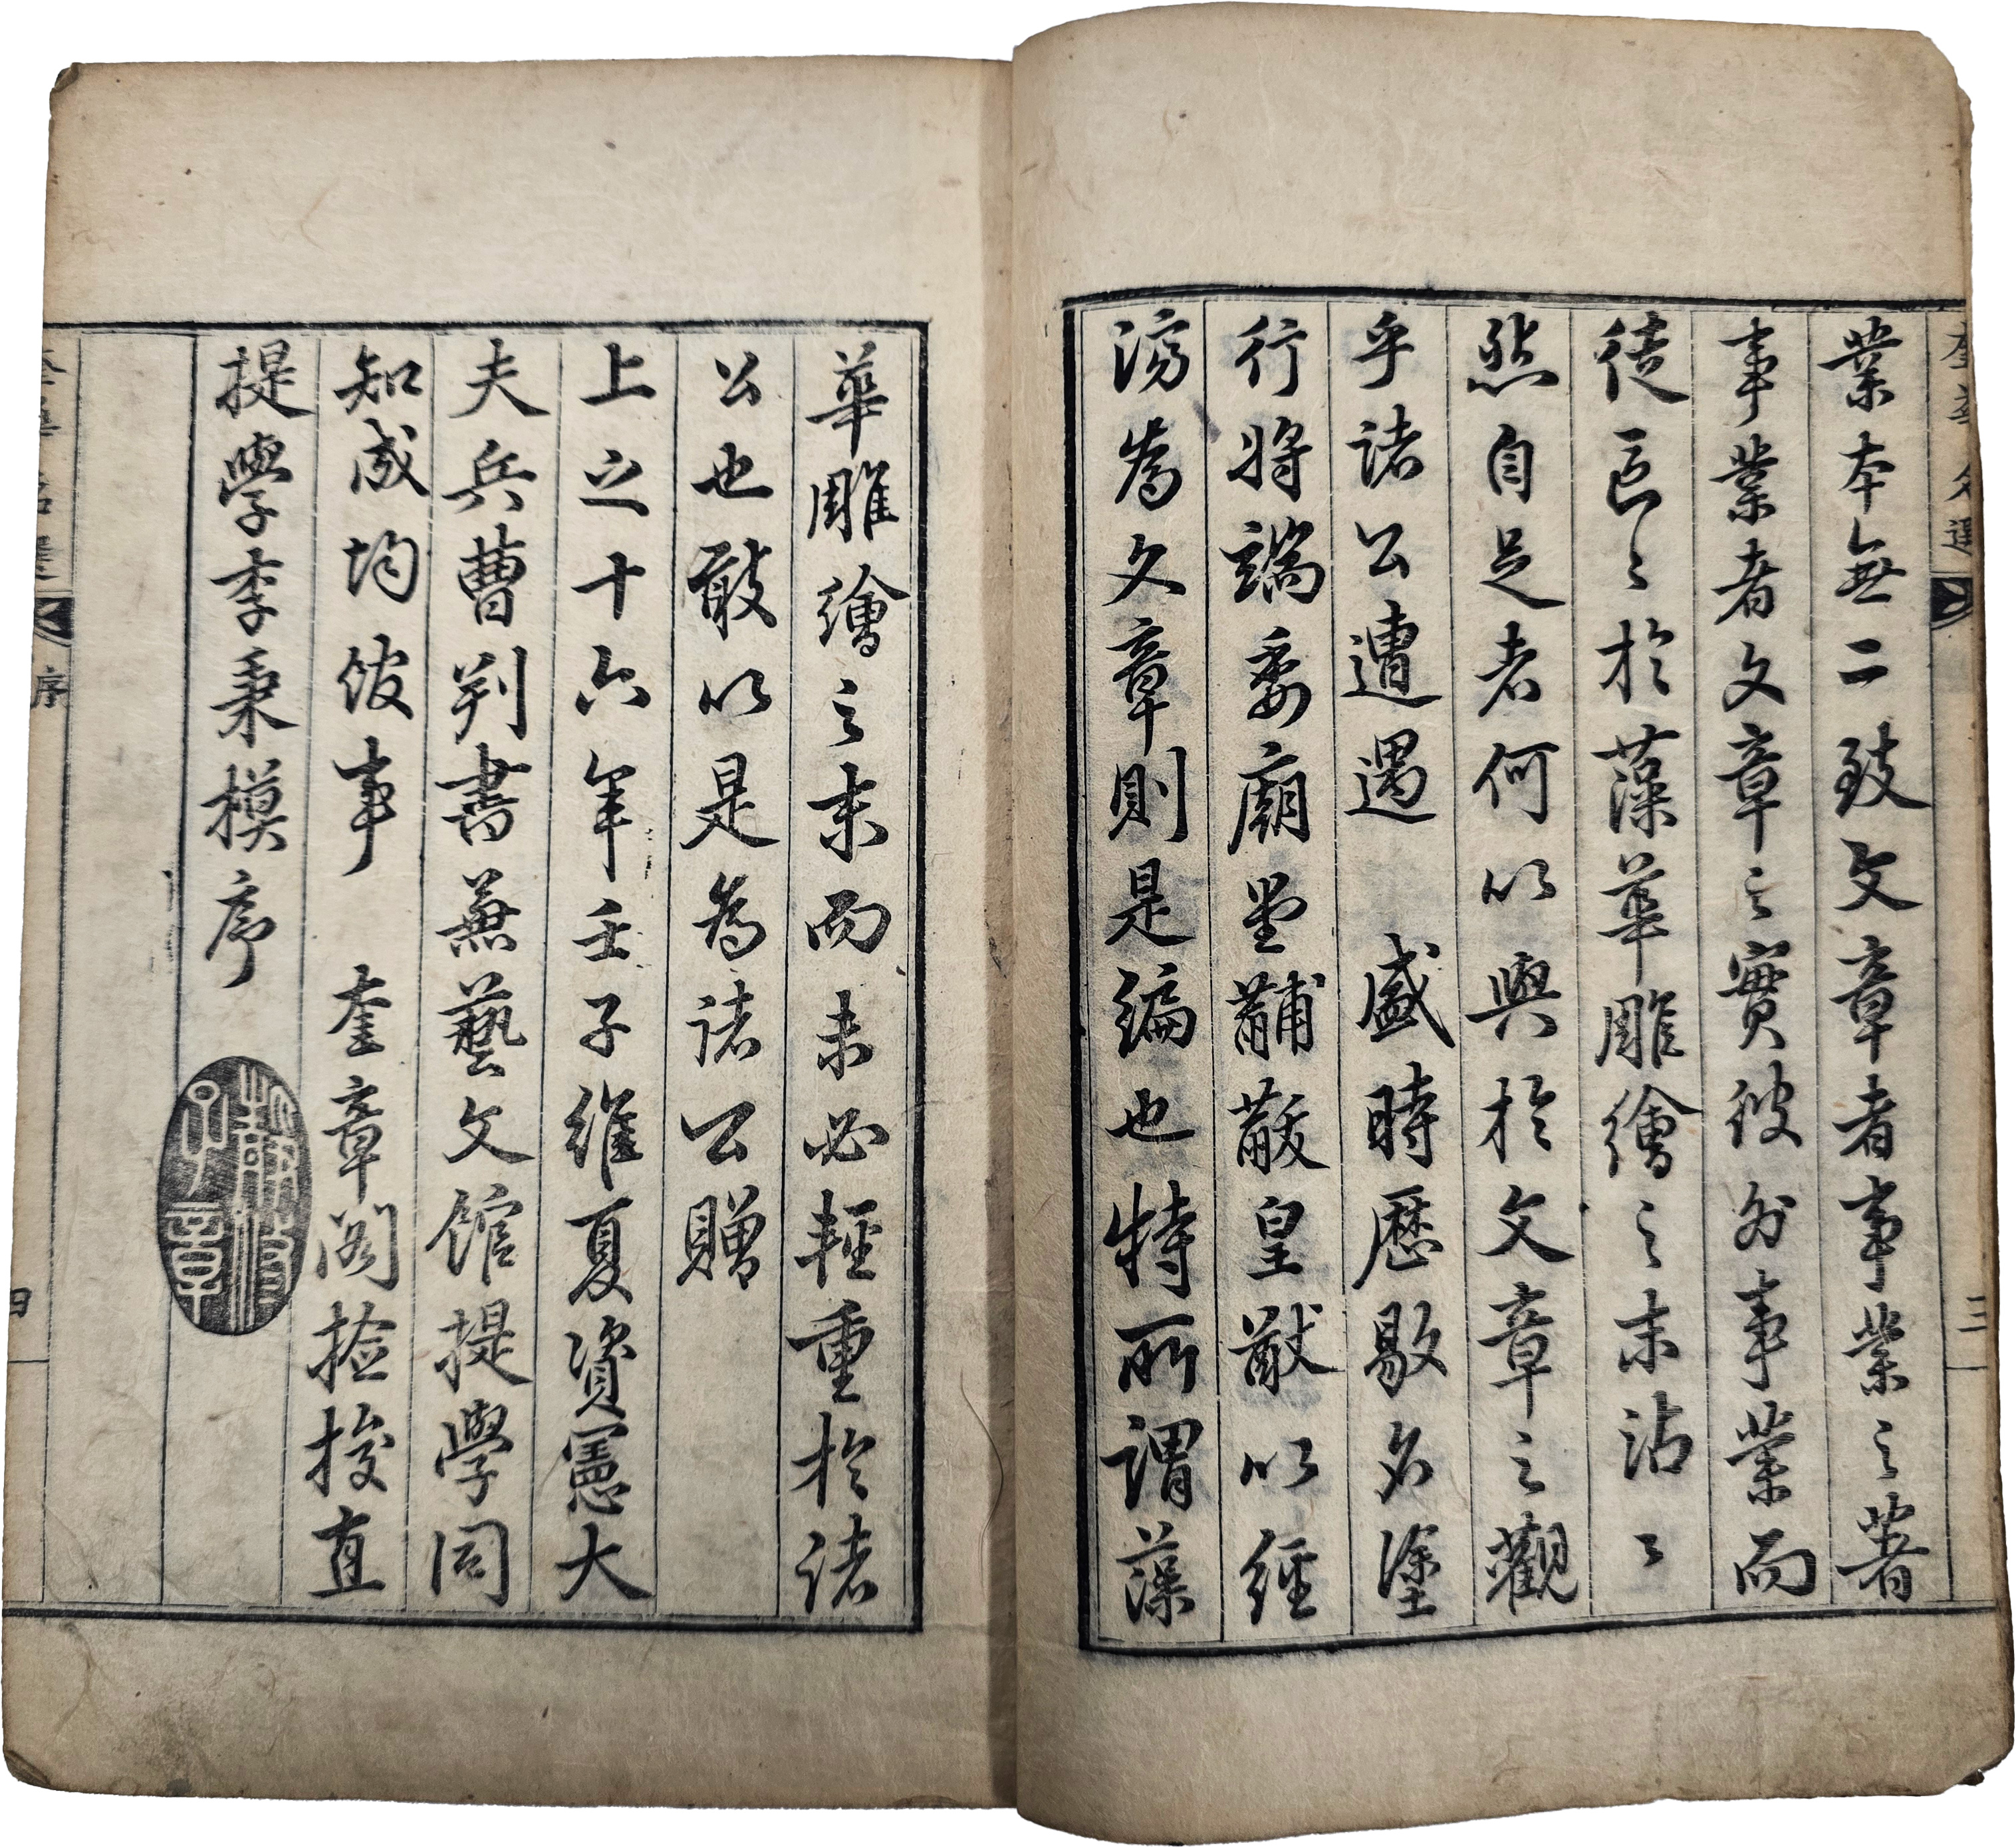 三
業本無二致文章者事業之著
事業者文章之實彼外事業而
徒區〻於藻華雕繪之末沾〻
然自足者何以與於文章之觀
乎諸公遭遇 盛時歷敭名塗
行將端委廟堂黼黻皇猷以經
濟為文章則是編也特所謂藻
華雕繪之末而未必輕重於諸
公也敢以是為諸公贈
上之十六年壬子維夏資憲大
夫兵曹判書兼藝文館提學同
知成均館事 奎章閣撿挍直
提學李秉模序
序 四